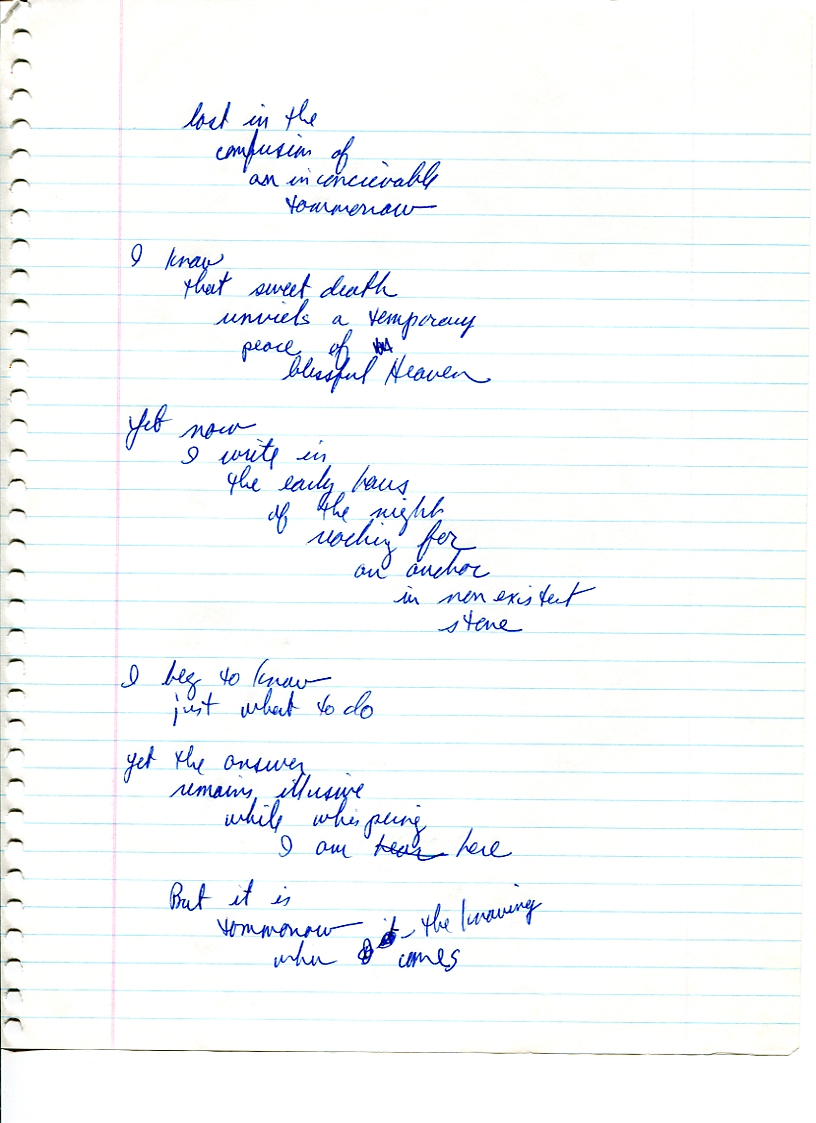 lost in the
confusion of
an inconcievable
tommorrow
I know
that sweet death
unviels a temporary
peace of
blissful Heaven
yet now
I write in
the early hours
of the night
reaching for
an anchor
in non existent
stone
I beg to know
just what to do
yet the answer
remains illusive
while whispering
I am hear here
But it is
tommorrow - the knowing
when comes